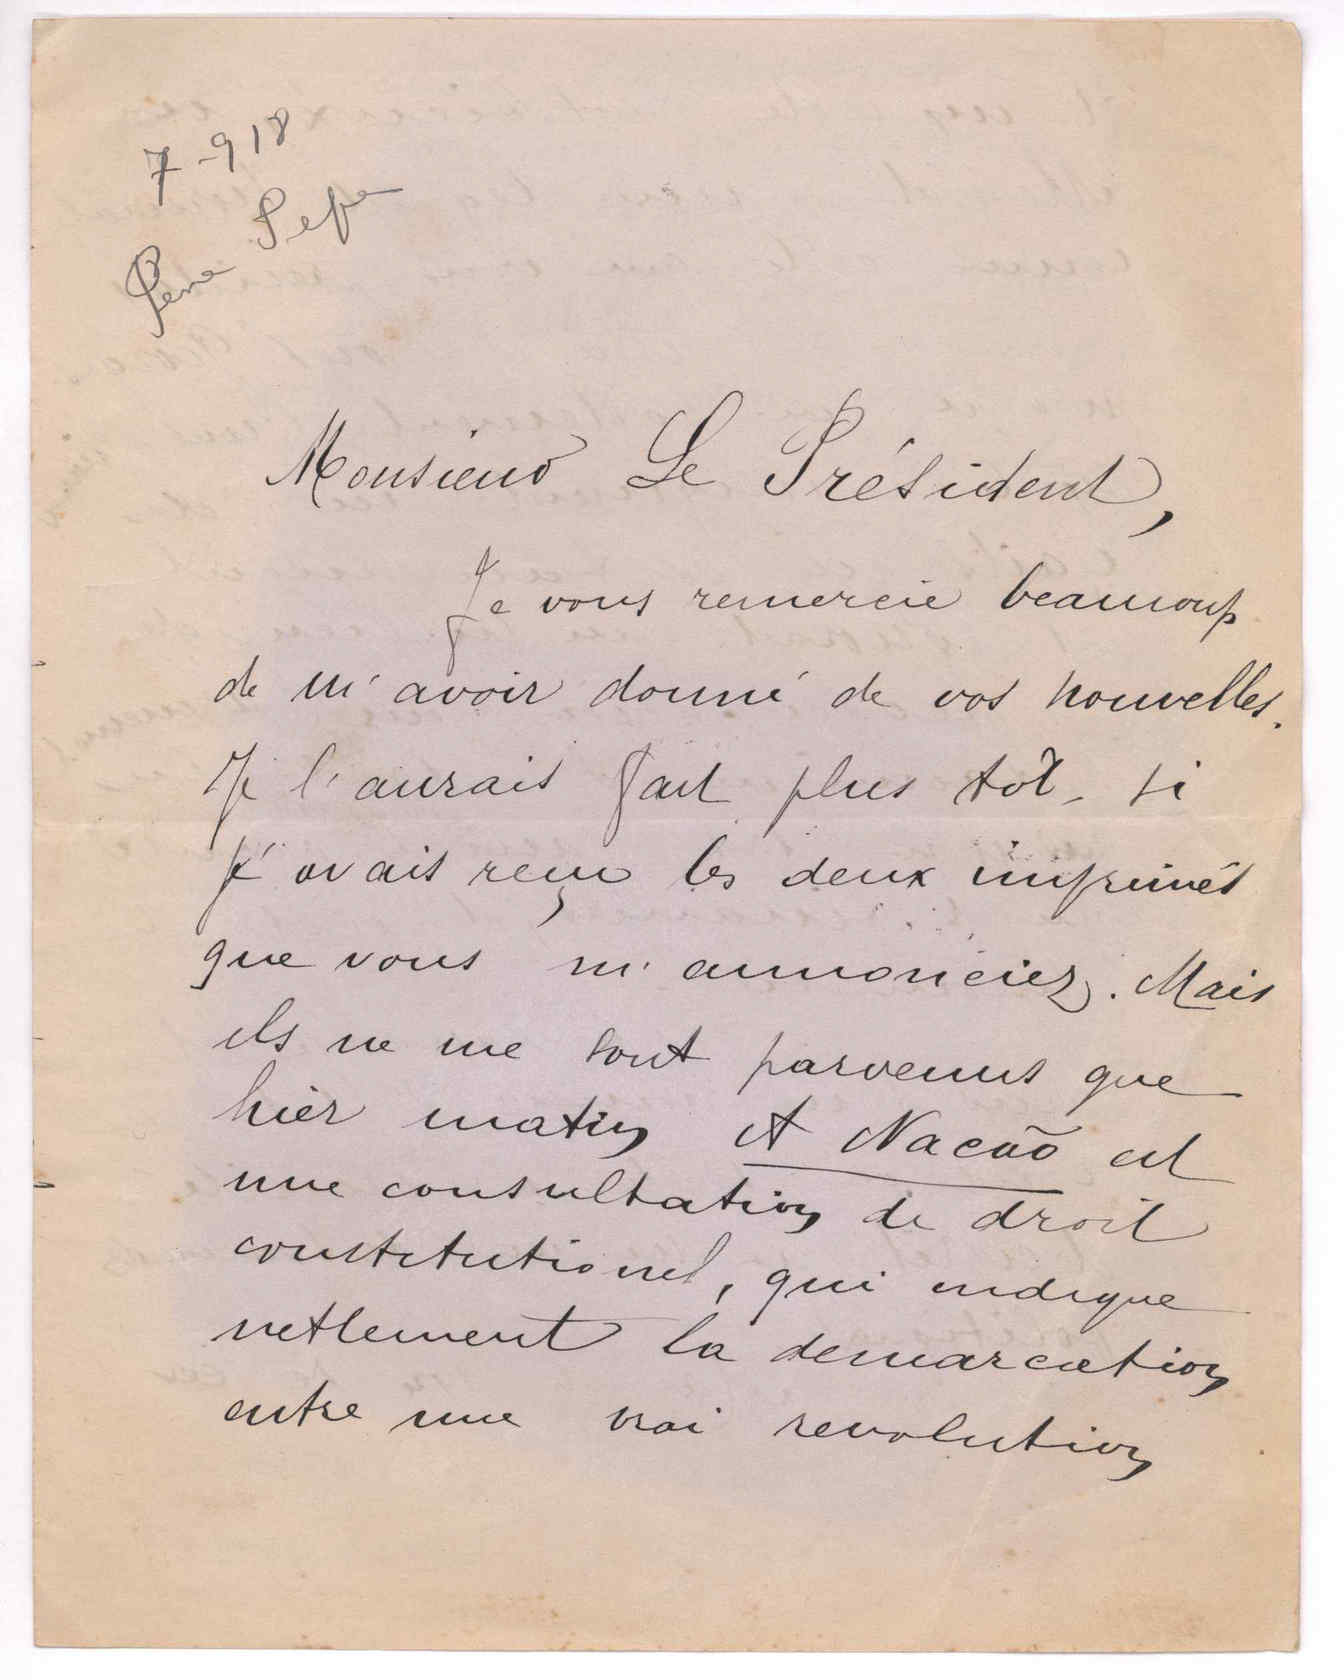 7-918
Pene Pepe
Monsieur Le Président,
Je vous remercie beaucoup
de m'avoir donné de vos nouvelles.
Je l'aurais fait plus tôt, si
j'avais reçu les deux imprimés
que vous m'annonciez. Mais
ils ne me sont parvenus que
hier matin A Nacão est
une consultation de droit
constitutionel, qui indique
nettement la demarcation
entre une vrai revolution